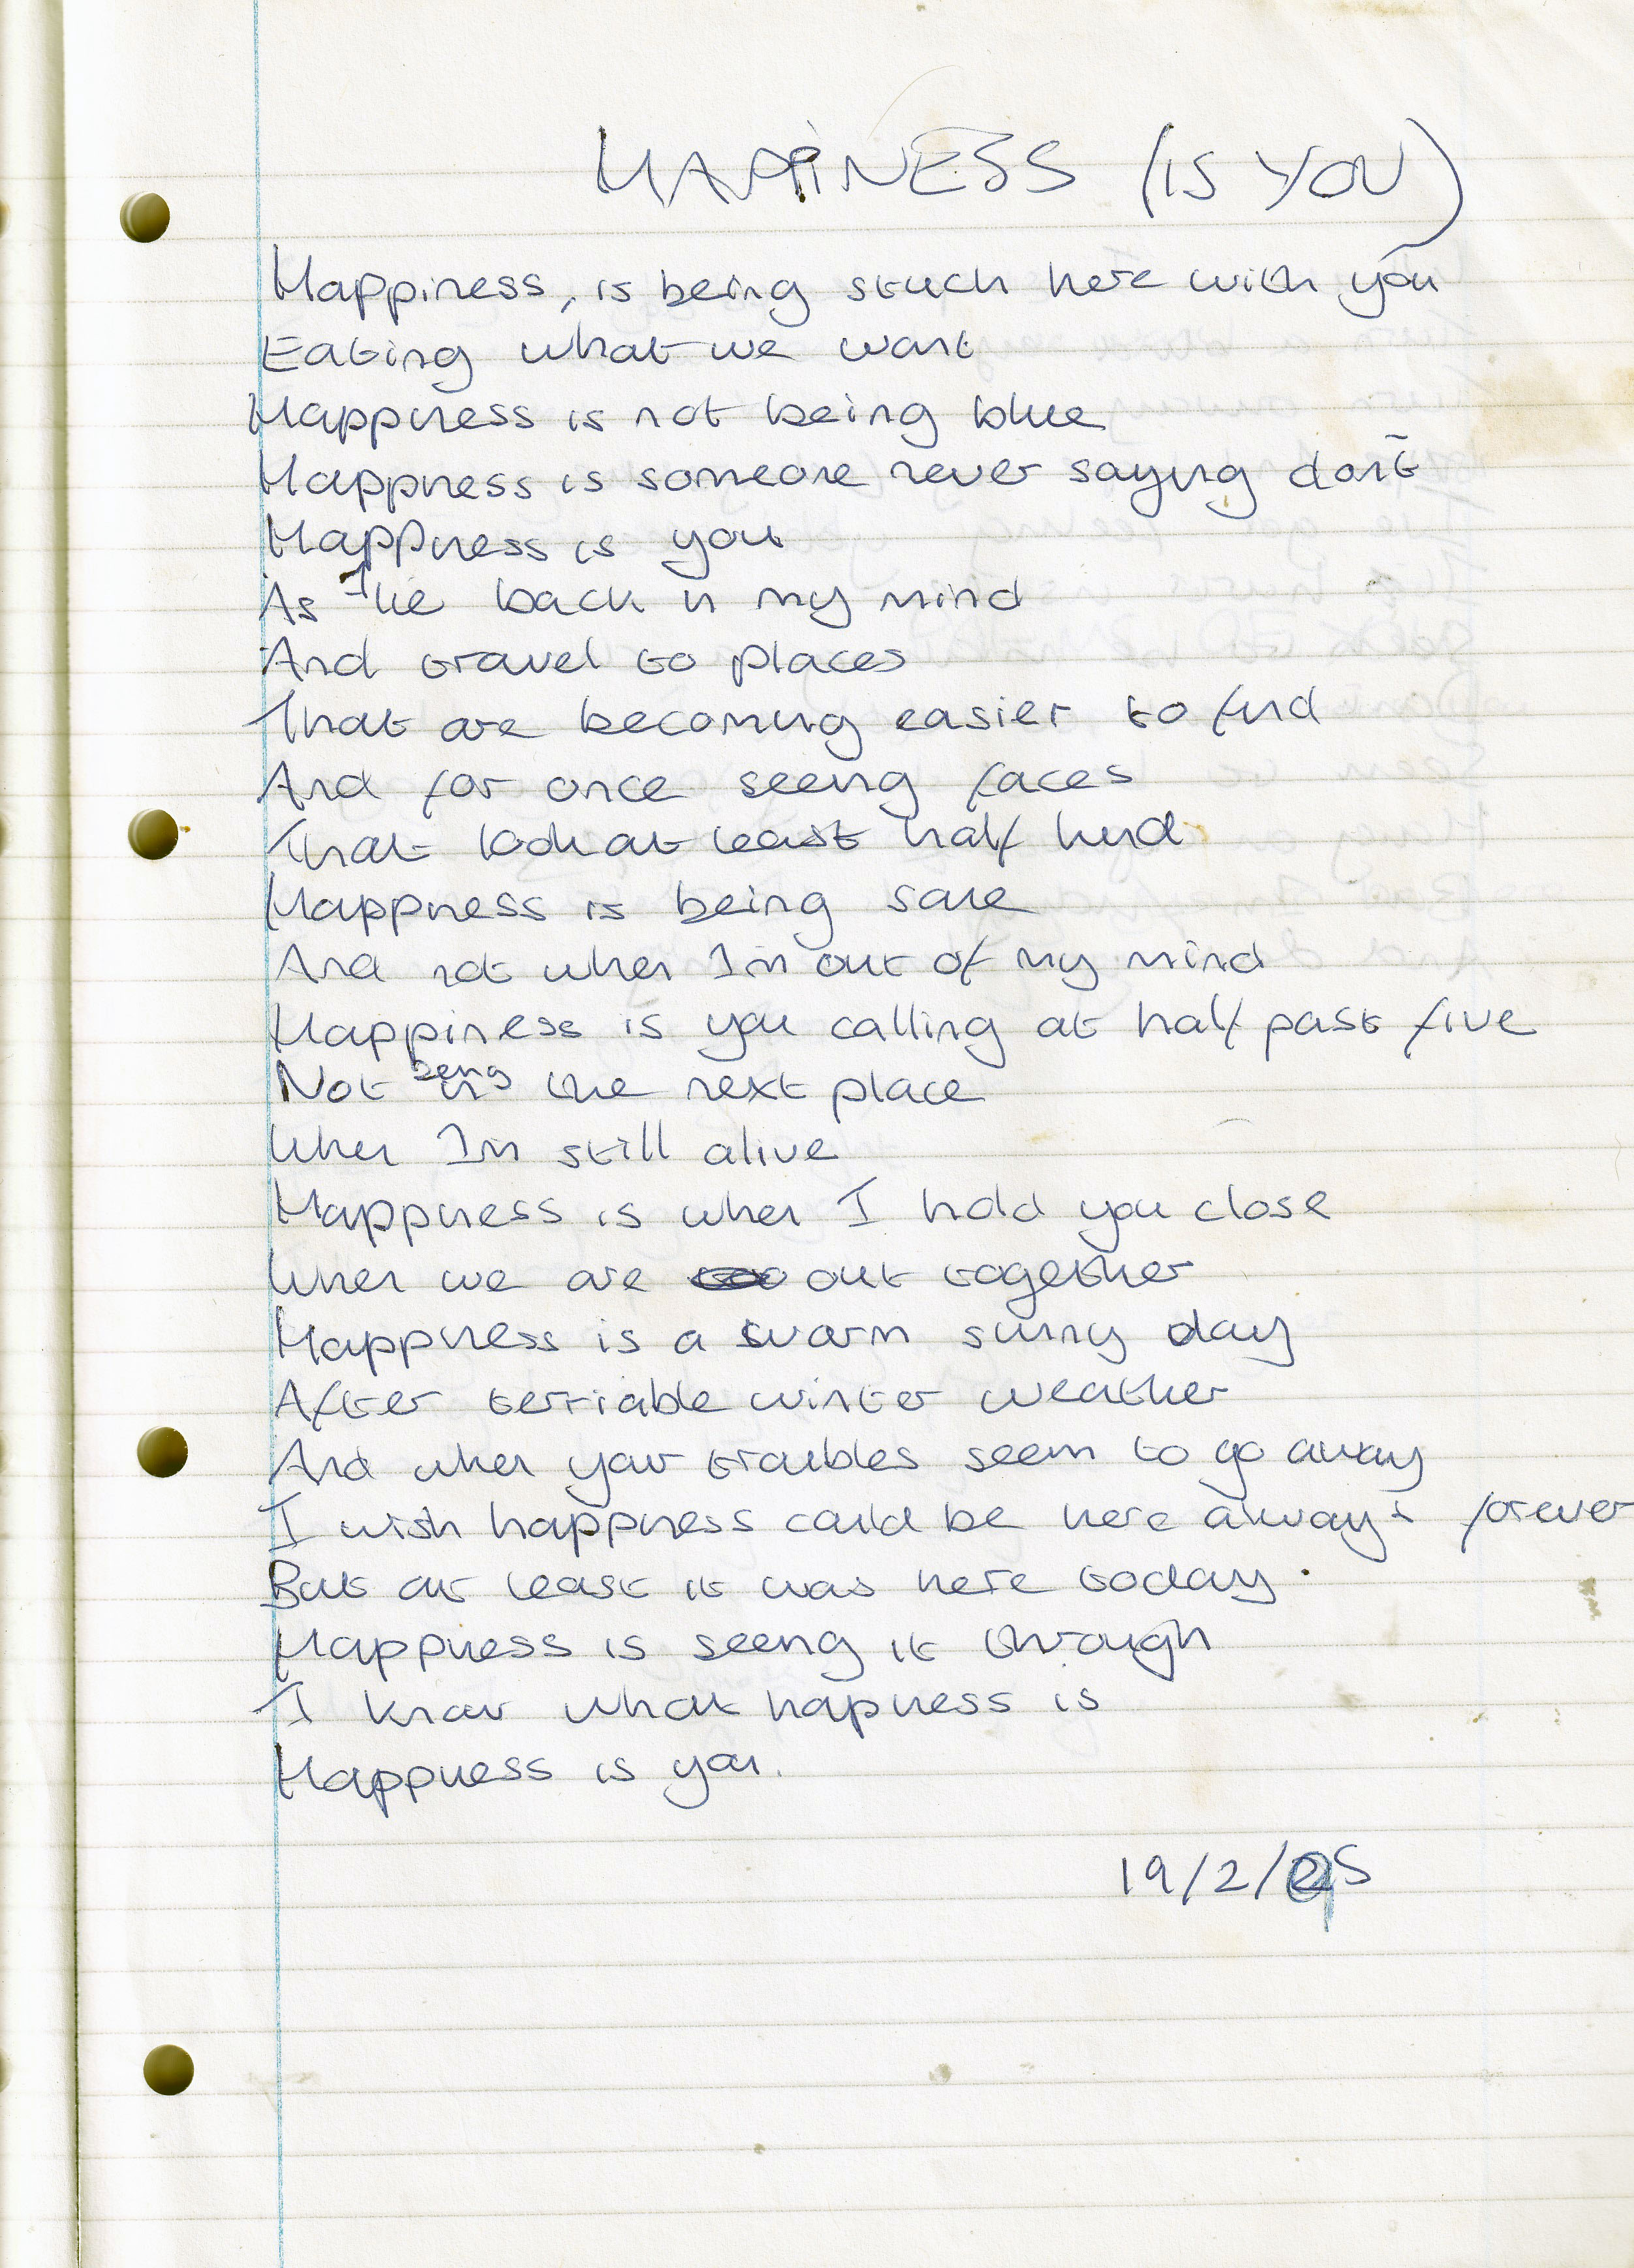 HAPPINESS (IS YOU)
Happiness, is being stuck here with you
Eating what we want
Happiness is not being blue
Happiness is someone never saying don't
Happiness is you
As I lie back in my mind
And travel to places
That are becoming easier to find
And for once seeing faces
That look at least half kind
Happiness is being sane
And not when I'm out of my mind
Happiness is you calling at half past five
Not being in the next place
When I'm still alive
Happiness is when I hold you close
When we are out together
Happiness is a warm sunny day
After terriable winter weather
And when your troubles seem to go away
I wish happiness could be here always forever
But at least it was here today.
Happiness is seeing it through
I know what hapiness is
Happiness is you.
19/2/95